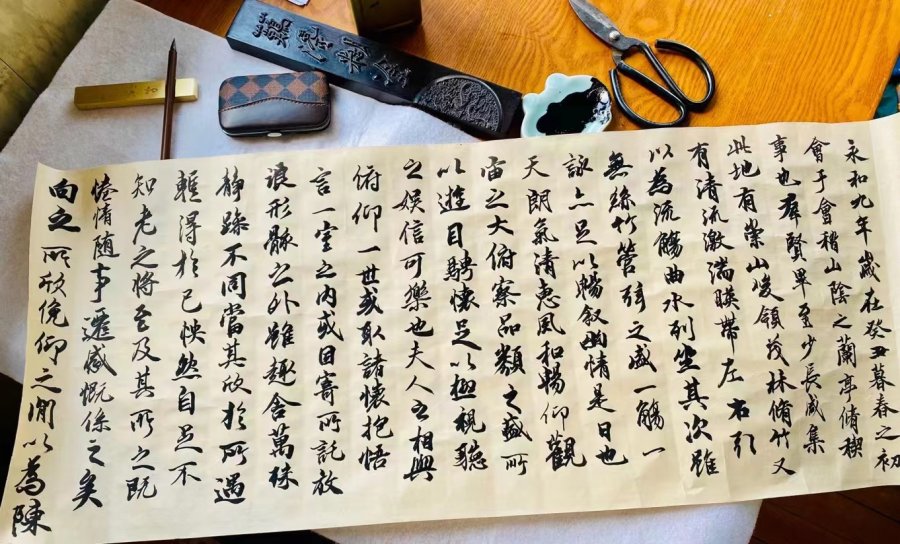 永和九年歲在癸丑暮春之初
會于會稽山陰之蘭亭脩稧
事也羣賢畢至少長咸集
此地有崇山峻領茂林脩竹又
有清流激湍暎帶左右引
以為流觴曲水列坐其次雖
無絲竹管弦之盛一觴一
詠亦足以暢叙幽情是日也
天朗氣清惠風和暢仰觀
宙之大俯察品類之盛所
以遊目騁懷足以極視聽
之娛信可樂也夫人之相與
俯仰一世或取諸懷抱悟
言一室之内或因寄所託放
浪形骸之外雖趣舍萬殊
靜躁不同當其欣於所遇
輙得於己怏然自足不
知老之將至及其所之既
惓情随事遷感慨係之矣
向之所欣俛仰之閒以為陳